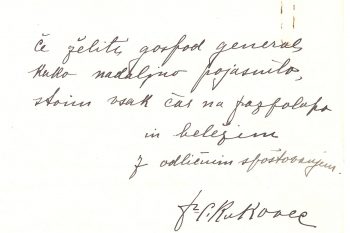 Če želite, gospod general,
kako nadaljno pojasnilo,
stoim vsak čas na razpolago
in beležim
z odličnim spoštovanjem.
C. Rukovec